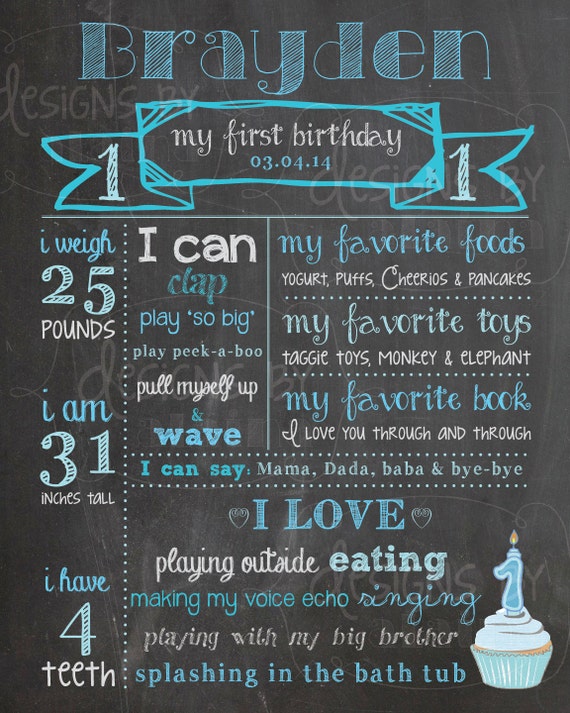 Brayden
my first birthday
03.04.14
1
1
i weigh
25
POUNDS
i am
31
inches tall
i have
4
teeth
I can
clap
play 'so big'
play peek-a-boo
pull myself up
&
wave
my favorite foods
yogurt, puffs, Cheerios & pancakes
my favorite toys
taggie toys, monkey & elephant
my favorite book
I love you through and through
I can say: Mama, Dada, baba & bye-bye
I LOVE
playing outside eating
making my voice echo singing
playing with my big brother
splashing in the bath tub
1
designs by
designs by
designs by
designs by